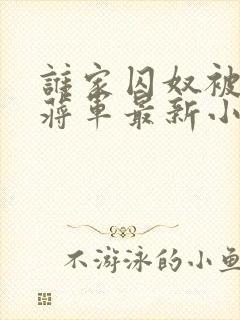 誰家囚奴被
蔣軍最新小
不游泳的小魚